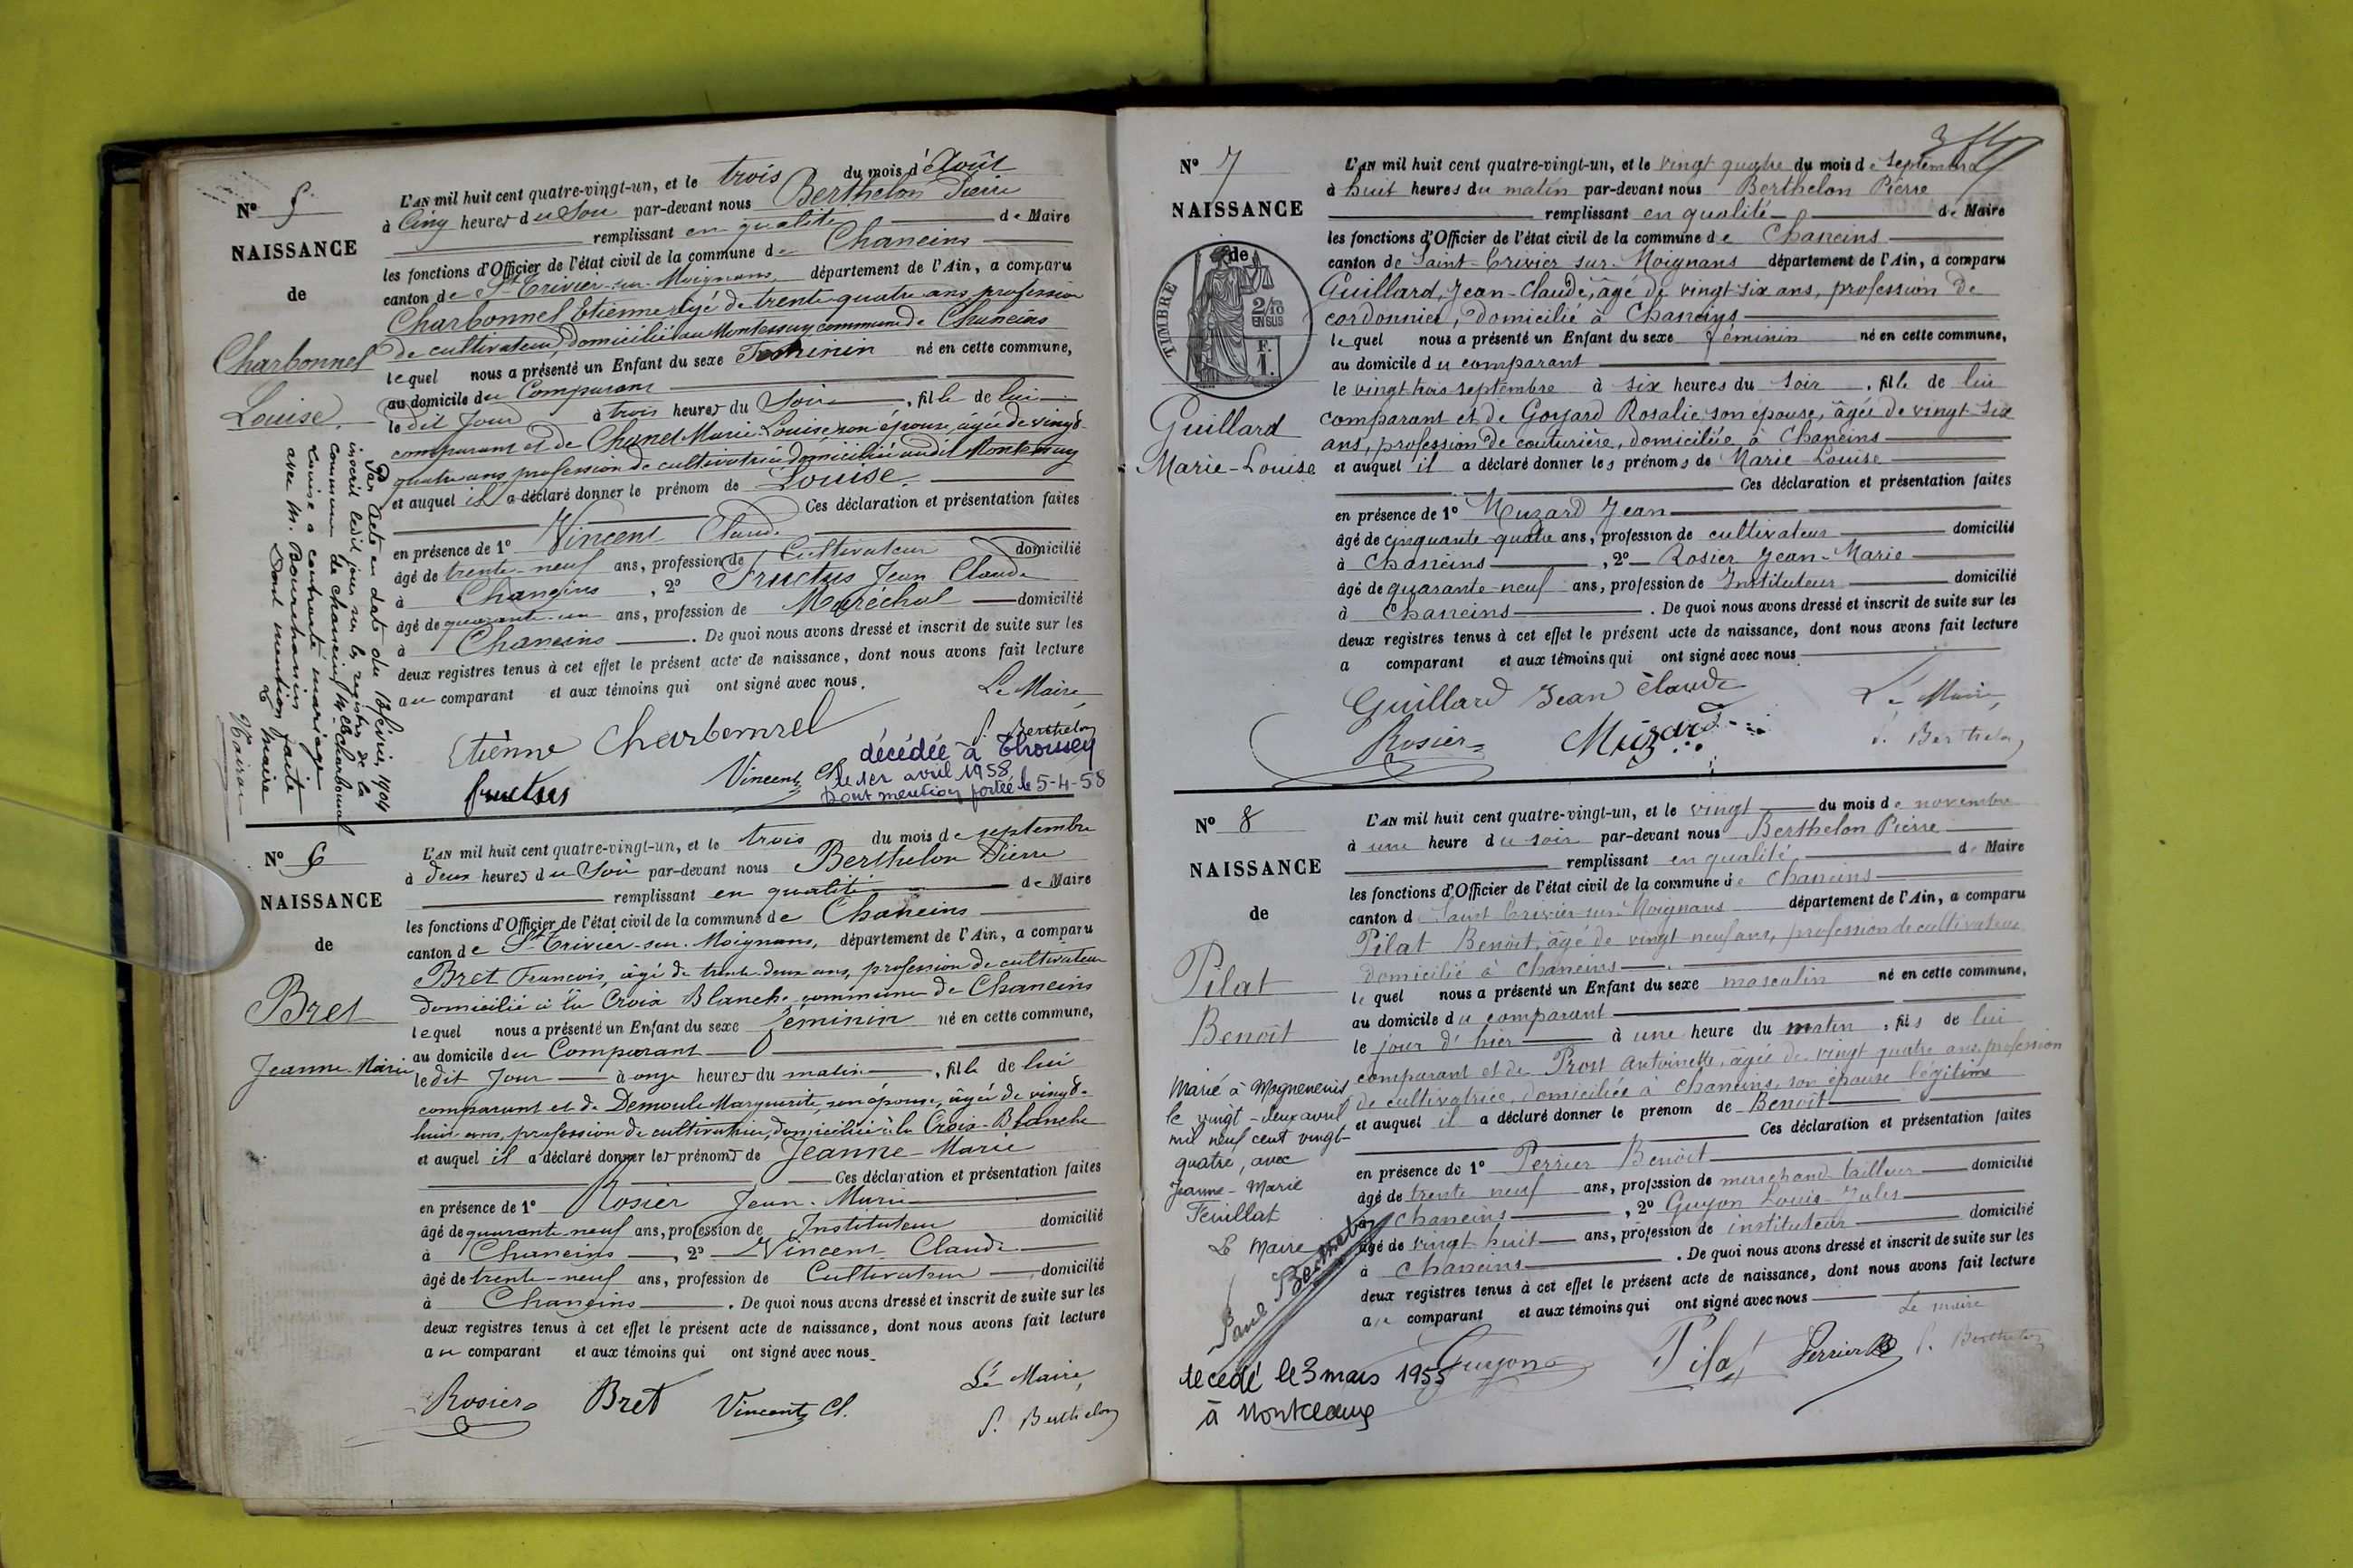 N° 5
NAISSANCE
de
Charbonnel
Louise.
L'AN mil huit cent quatre-vingt-un, et le trois du mois d'Août
à Cinq heures du Soir par-devant nous Berthelon Pierre
remplissant en qualité de Maire
les fonctions d'Officier de l'état civil de la commune de Chaneins
canton de St Trivier-sur-Moignans département de l'Ain, a comparu
Charbonnel Etienne, âgé de trente-quatre ans, profession
de cultivateur, domicilié au Montessuy commune de Chaneins
lequel nous a présenté un Enfant du sexe Féminin né en cette commune,
au domicile du Comparant
le dit Jour à trois heures du Soir, fille de lui
comparant et de Chanel Marie-Louise son épouse, âgée de vingt-
quatre ans, profession de cultivatrice domiciliée audit Montessuy
et auquel il a déclaré donner le prénom de Louise.
Ces déclaration et présentation faites
en présence de 1° Vincent Claude
âgé de trente-neuf ans, profession de Cultivateur domicilié
à Chaneins, 2° Fructus Jean Claude
âgé de quarante-un ans, profession de Maréchal domicilié
à Chaneins. De quoi nous avons dressé et inscrit de suite sur les
deux registres tenus à cet effet le présent acte de naissance, dont nous avons fait lecture
au comparant et aux témoins qui ont signé avec nous.
Le Maire
Etienne Charbonnel
P. Berthelon
fructus
Vincent Cl.
décédée à Thoissey
le 1er avril 1958
Dont mention portée le 5-4-58
Par Acte en date du 13 février 1904
inscrit ledit jour sur les registres de la
commune de Chaneins, Melle Charbonnel
Louise a contracté mariage
avec M. Bourchanin
Dont mention faite
Le Maire
N° 6
NAISSANCE
de
Bret
Jeanne-Marie
L'AN mil huit cent quatre-vingt-un, et le trois du mois de septembre
à deux heures du Soir par-devant nous Berthelon Pierre
remplissant en qualité de Maire
les fonctions d'Officier de l'état civil de la commune de Chaneins
canton de St Trivier-sur-Moignans, département de l'Ain, a comparu
Bret François, âgé de trente-deux ans, profession de cultivateur
domicilié à la Croix Blanche commune de Chaneins
lequel nous a présenté un Enfant du sexe féminin né en cette commune,
au domicile du Comparant
le dit Jour à onze heures du matin, fille de lui
comparant et de Demoule Marguerite, son épouse, âgée de vingt-
huit ans, profession de cultivatrice, domiciliée à la Croix-Blanche
et auquel il a déclaré donner les prénoms de Jeanne-Marie
Ces déclaration et présentation faites
en présence de 1° Rosier Jean-Marie
âgé de quarante-neuf ans, profession de Instituteur domicilié
à Chaneins, 2° Vincent Claude
âgé de trente-neuf ans, profession de Cultivateur domicilié
à Chaneins. De quoi nous avons dressé et inscrit de suite sur les
deux registres tenus à cet effet le présent acte de naissance, dont nous avons fait lecture
au comparant et aux témoins qui ont signé avec nous
Le Maire,
Rosier Bret Vincent Cl.
P. Berthelon
3
N° 7
NAISSANCE
de
TIMBRE
2/10
EN SUS
F.
1.
Guillard
Marie-Louise
L'AN mil huit cent quatre-vingt-un, et le vingt quatre du mois de septembre
à huit heures du matin par-devant nous Berthelon Pierre
remplissant en qualité de Maire
les fonctions d'Officier de l'état civil de la commune de Chaneins
canton de Saint-Trivier sur-Moignans département de l'Ain, a comparu
Guillard, Jean-Claude, âgé de vingt-six ans, profession de
cordonnier, domicilié à Chaneins
lequel nous a présenté un Enfant du sexe féminin né en cette commune,
au domicile du comparant
le vingt trois septembre à six heures du soir, fille de lui
comparant et de Goyard Rosalie son épouse, âgée de vingt-six
ans, profession de couturière, domiciliée à Chaneins
et auquel il a déclaré donner les prénoms de Marie-Louise
Ces déclaration et présentation faites
en présence de 1° Muzard Jean
âgé de cinquante-quatre ans, profession de cultivateur domicilié
à Chaneins, 2° Rosier Jean-Marie
âgé de quarante-neuf ans, profession de Instituteur domicilié
à Chaneins. De quoi nous avons dressé et inscrit de suite sur les
deux registres tenus à cet effet le présent acte de naissance, dont nous avons fait lecture
a comparant et aux témoins qui ont signé avec nous
Guillard Jean Claude
Le Maire,
Rosier Muzard
P. Berthelon
N° 8
NAISSANCE
de
Pilat
Benoît
L'AN mil huit cent quatre-vingt-un, et le vingt du mois de novembre
à une heure du soir par-devant nous Berthelon Pierre
remplissant en qualité de Maire
les fonctions d'Officier de l'état civil de la commune de Chaneins
canton d Saint Trivier-sur-Moignans département de l'Ain, a comparu
Pilat Benoît, âgé de vingt-neuf ans, profession de cultivateur
domicilié à Chaneins
lequel nous a présenté un Enfant du sexe masculin né en cette commune,
au domicile du comparant
le jour d'hier à une heure du matin, fils de lui
comparant et de Prost Antoinette, âgée de vingt quatre ans, profession
de cultivatrice, domiciliée à Chaneins, son épouse légitime
et auquel il a déclaré donner le prénom de Benoît
Ces déclaration et présentation faites
en présence de 1° Perrier Benoît
âgé de trente neuf ans, profession de marchand tailleur domicilié
à Chaneins, 2° Guyon Louis-Jules
âgé de vingt huit ans, profession de instituteur domicilié
à Chaneins. De quoi nous avons dressé et inscrit de suite sur les
deux registres tenus à cet effet le présent acte de naissance, dont nous avons fait lecture
au comparant et aux témoins qui ont signé avec nous
Le maire
Guyon Pilat Perrier B
P. Berthelon
Marié à Mogneneins
le vingt-deux avril
mil neuf cent vingt-
quatre, avec
Jeanne-Marie
Feuillat
Le Maire
décédé le 3 mars 1955
à Montceaux